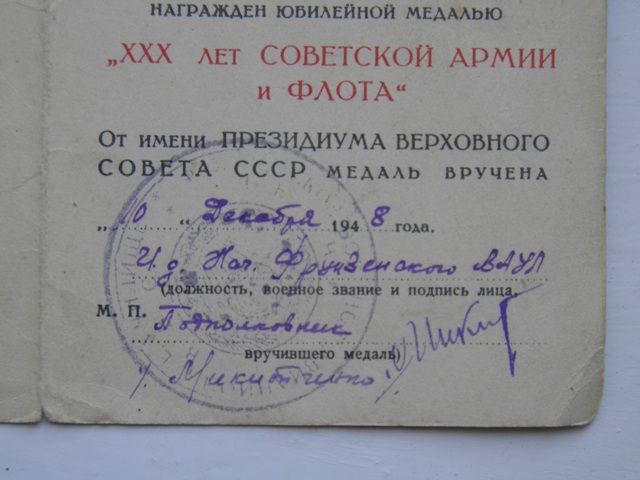 НАГРАЖДЕН ЮБИЛЕЙНОЙ МЕДАЛЬЮ
„XXX ЛЕТ СОВЕТСКОЙ АРМИИ
И ФЛОТА“
ОТ ИМЕНИ ПРЕЗИДИУМА ВЕРХОВНОГО
СОВЕТА СССР МЕДАЛЬ ВРУЧЕНА
„10“ Декабря 1948 года.
И.д. Нач. Фрунзенского ВАУЛ
(должность, военное звание и подпись лица,
М. П. Подполковник
вручившего медаль)
/ Микитченко